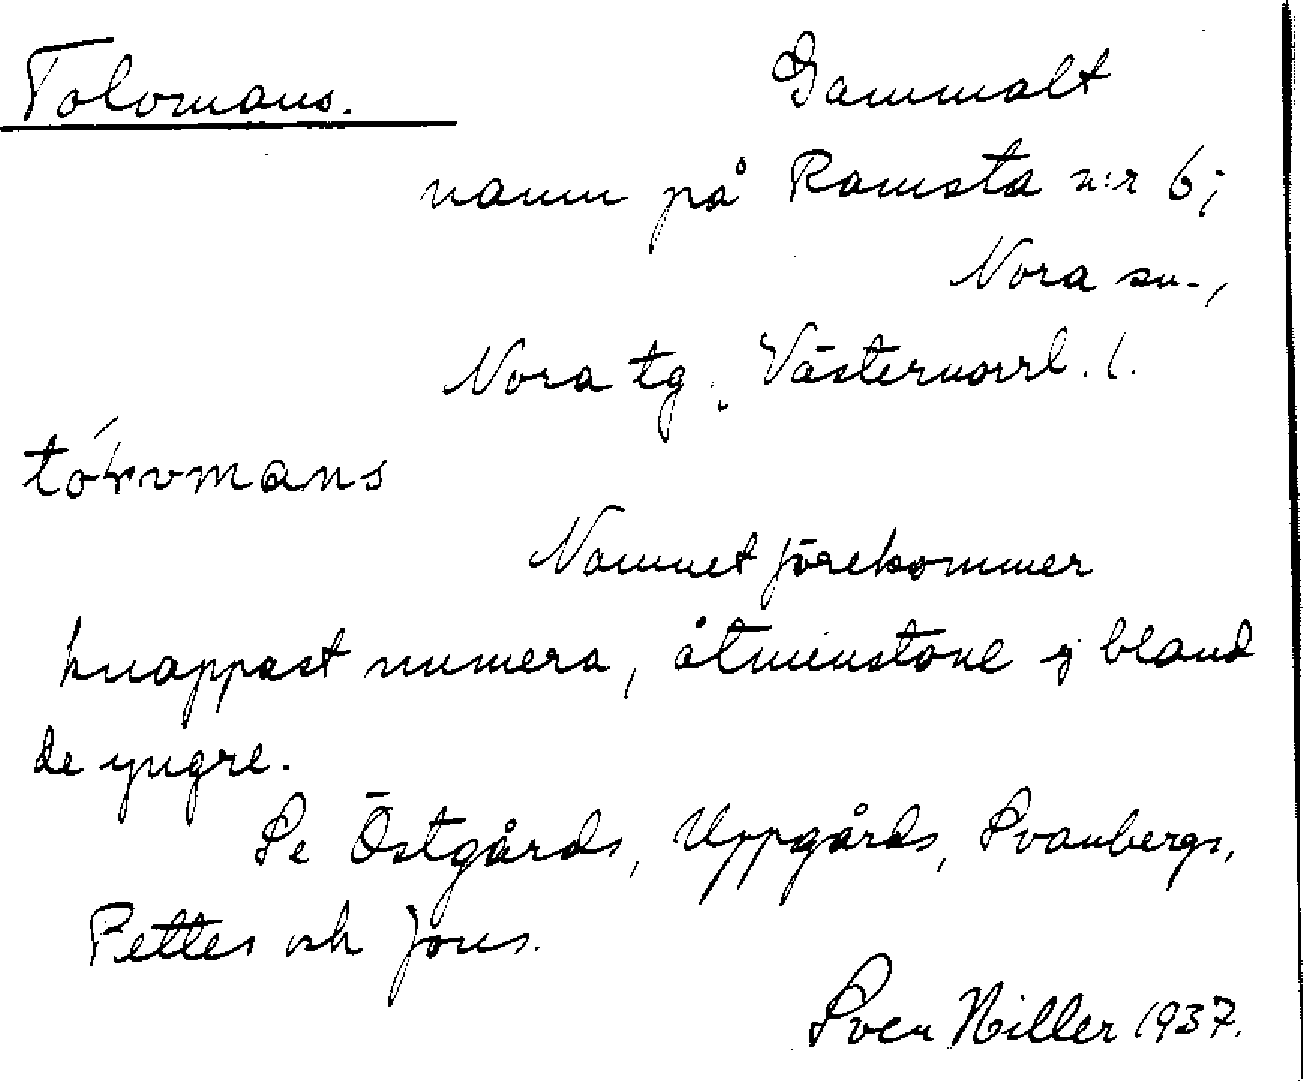 Tolvmans.
Gammalt
namn på Ramsta n:r 6;
Nora sn.,
Nora tg., Västernorrl. l.
Namnet förekommer
knappast numera, åtminstone ej bland
de yngre.
Se Östgårds, Uppgårds, Svanbergs,
Pettes och Jons.
Sven Hiller 1937.